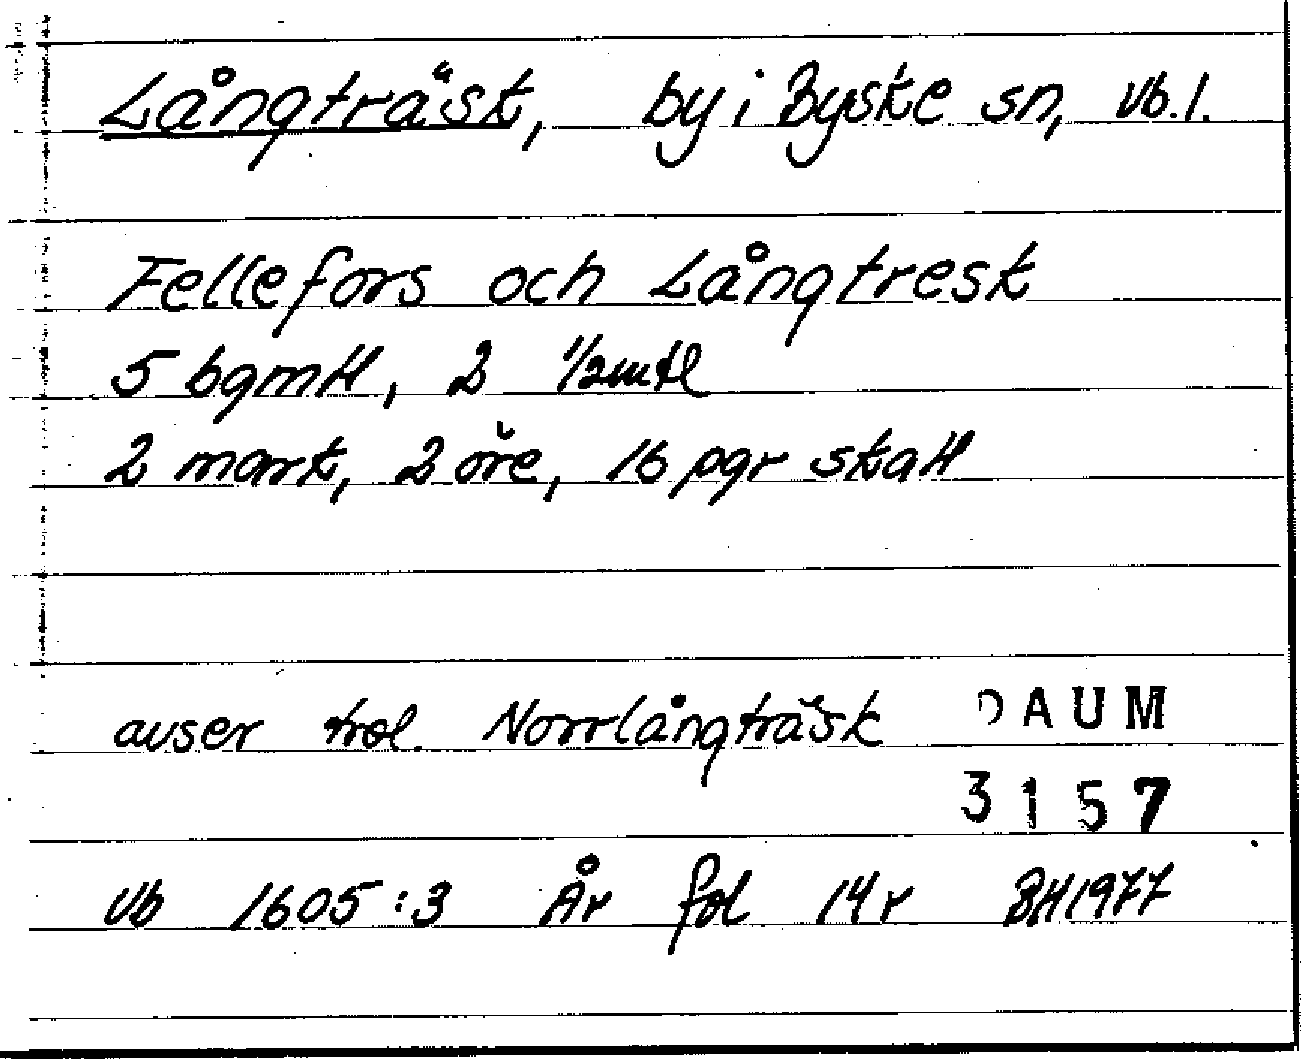 Långträsk, by i Byske sn, Vb.l.
Fellefors och Långtresk
5 bgmtl, 2 1/2mtl
2 mark, 2 öre, 16 pgr skatt
avser trol. Norrlångträsk
DAUM
3157
Vb 1605:3 År fol 14r BH1977